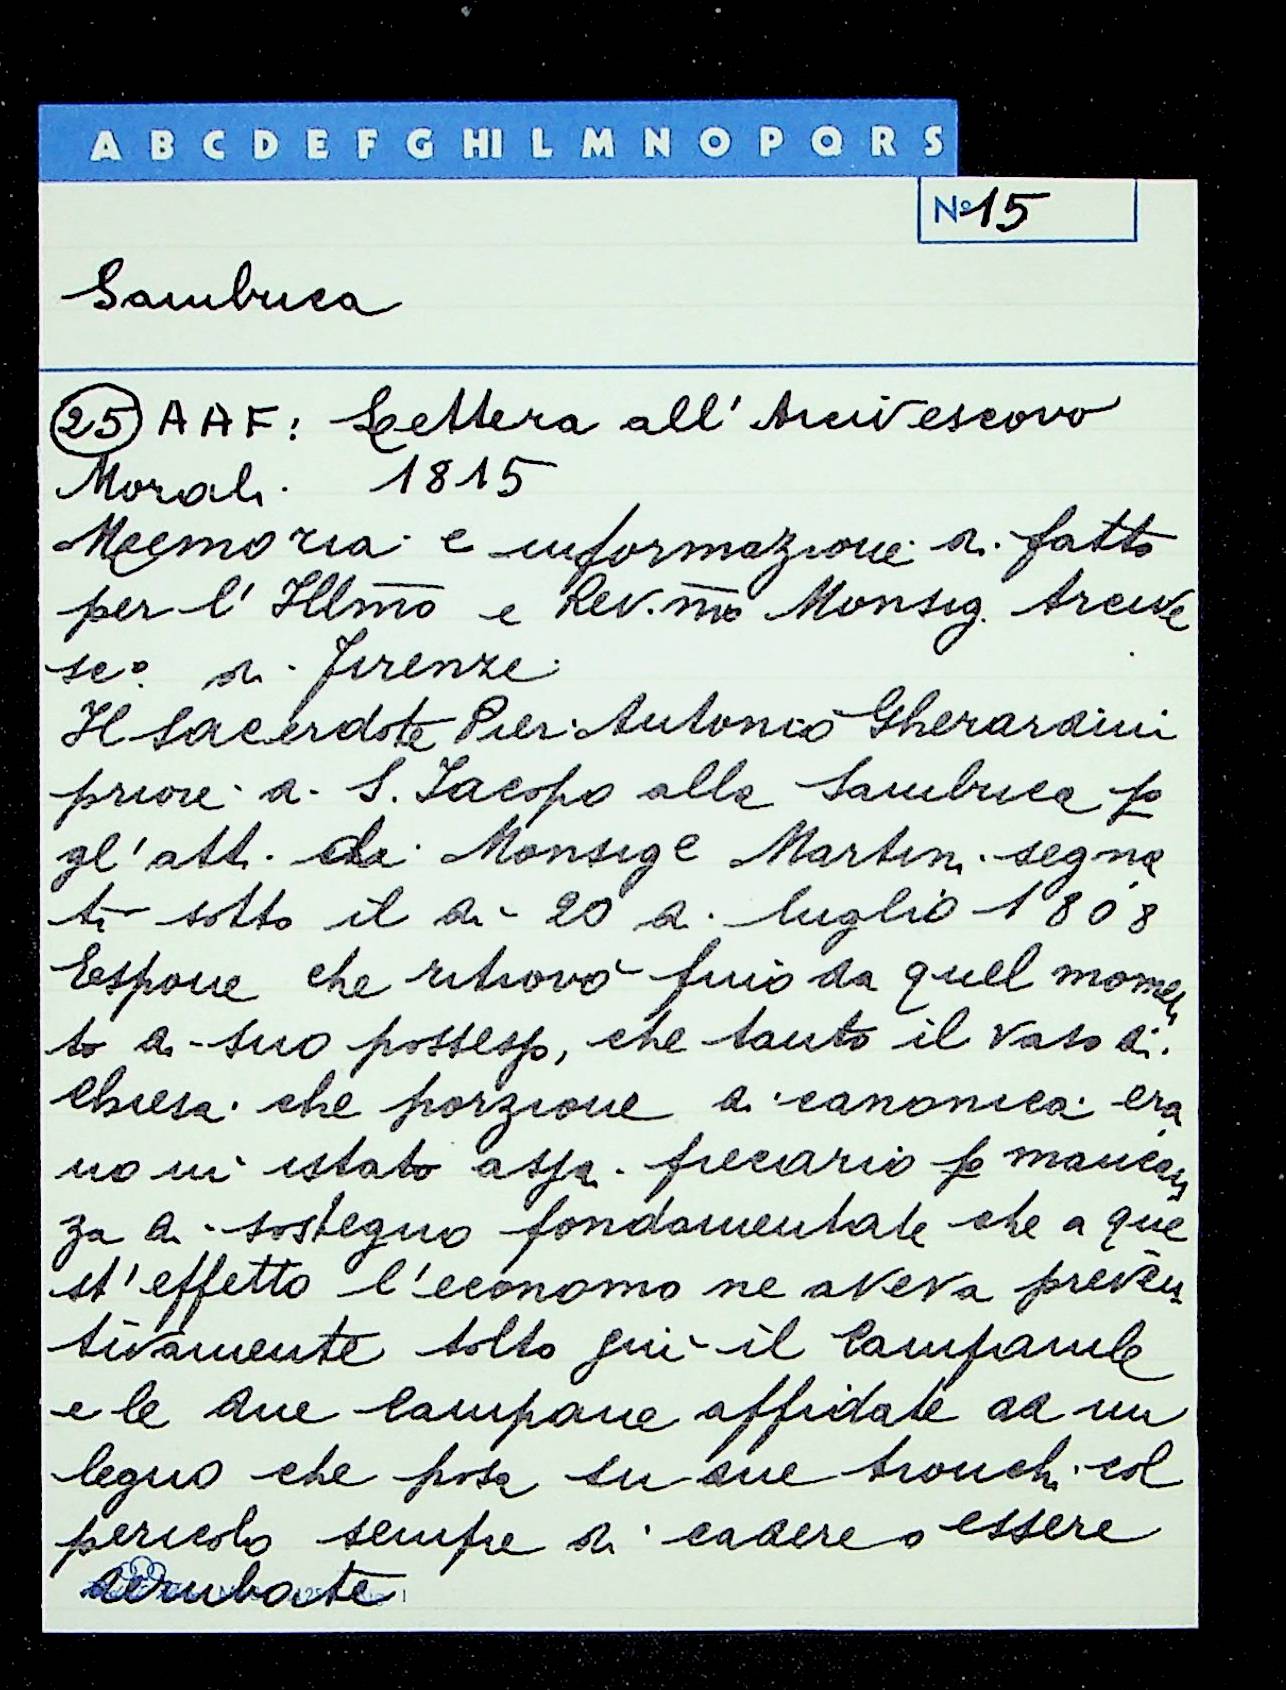 A B C D E F G HI L M N O P Q R S
Nº 15
Sambuca
25 AAF: Lettera all' Arcivescovo
Morali. 1815
Memoria e informazione di fatto
per l' Illmo e Rev.mo Monsig. Arcive
sco. di Firenze
Il Sacerdote Pier Antonio Gherardini
priore di S. Jacopo alla Sambuca p
gl'atti di Monsige Martini segna
ti sotto il di 20 di luglio 1808
Espone che ritrovò fino da quel momen
to di suo possesso, che tanto il vaso di
Chiesa che porzione di canonica era
no in istato assai precario p mancan
za di sostegno fondamentale che a que
st'effetto l'economo ne aveva preven
tivamente tolto giù il Campanile
e le due Campane affidate ad un
legno che posa su due tronchi col
pericolo sempre di cadere o essere
derubate